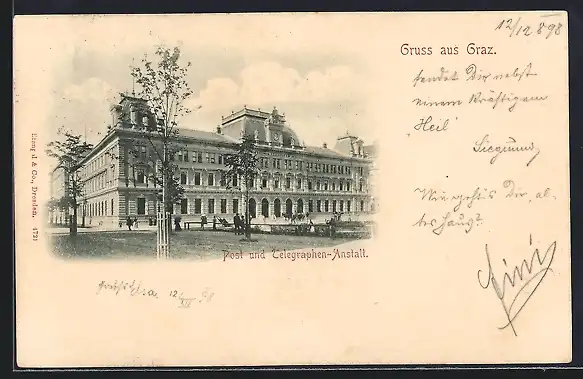 12/12 898
Gruss aus Graz.
sendet Dir nebst
einem kräftigen
"Heil"
Siegmund
Wie geht's Dir, al-
tes Haus?
Stengel & Co., Dresden. 4729
Post und Telegraphen-Anstalt.
12/XII 98